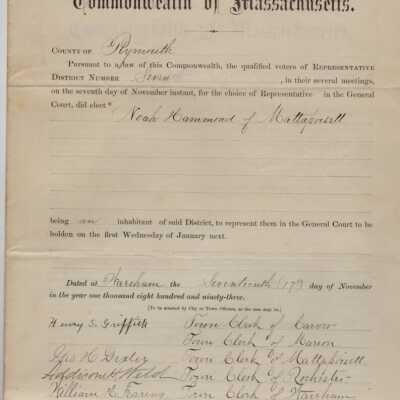 Commonwealth of Massachusetts.
COUNTY OF Plymouth
Pursuant to a law of this Commonwealth, the qualified voters of REPRESENTATIVE
DISTRICT NUMBER , in their several meetings,
on the seventh day of November instant, for the choice of Representative in the General
Court, did elect*
Noah Hammond of Mattapoisett
being an inhabitant of said District, to represent them in the General Court to be
holden on the first Wednesday of January next.
Dated at Wareham the Seventeenth day of November
in the year one thousand eight hundred and ninety-three.
[To be attested by City or Town Officers, as the case may be.]
Henry S. Griffith Town Clerk of Carver
Town Clerk of Marion
H. Dexter Town Clerk of Mattapoisett
Town Clerk of Rochester
William Town Clerk of Wareham